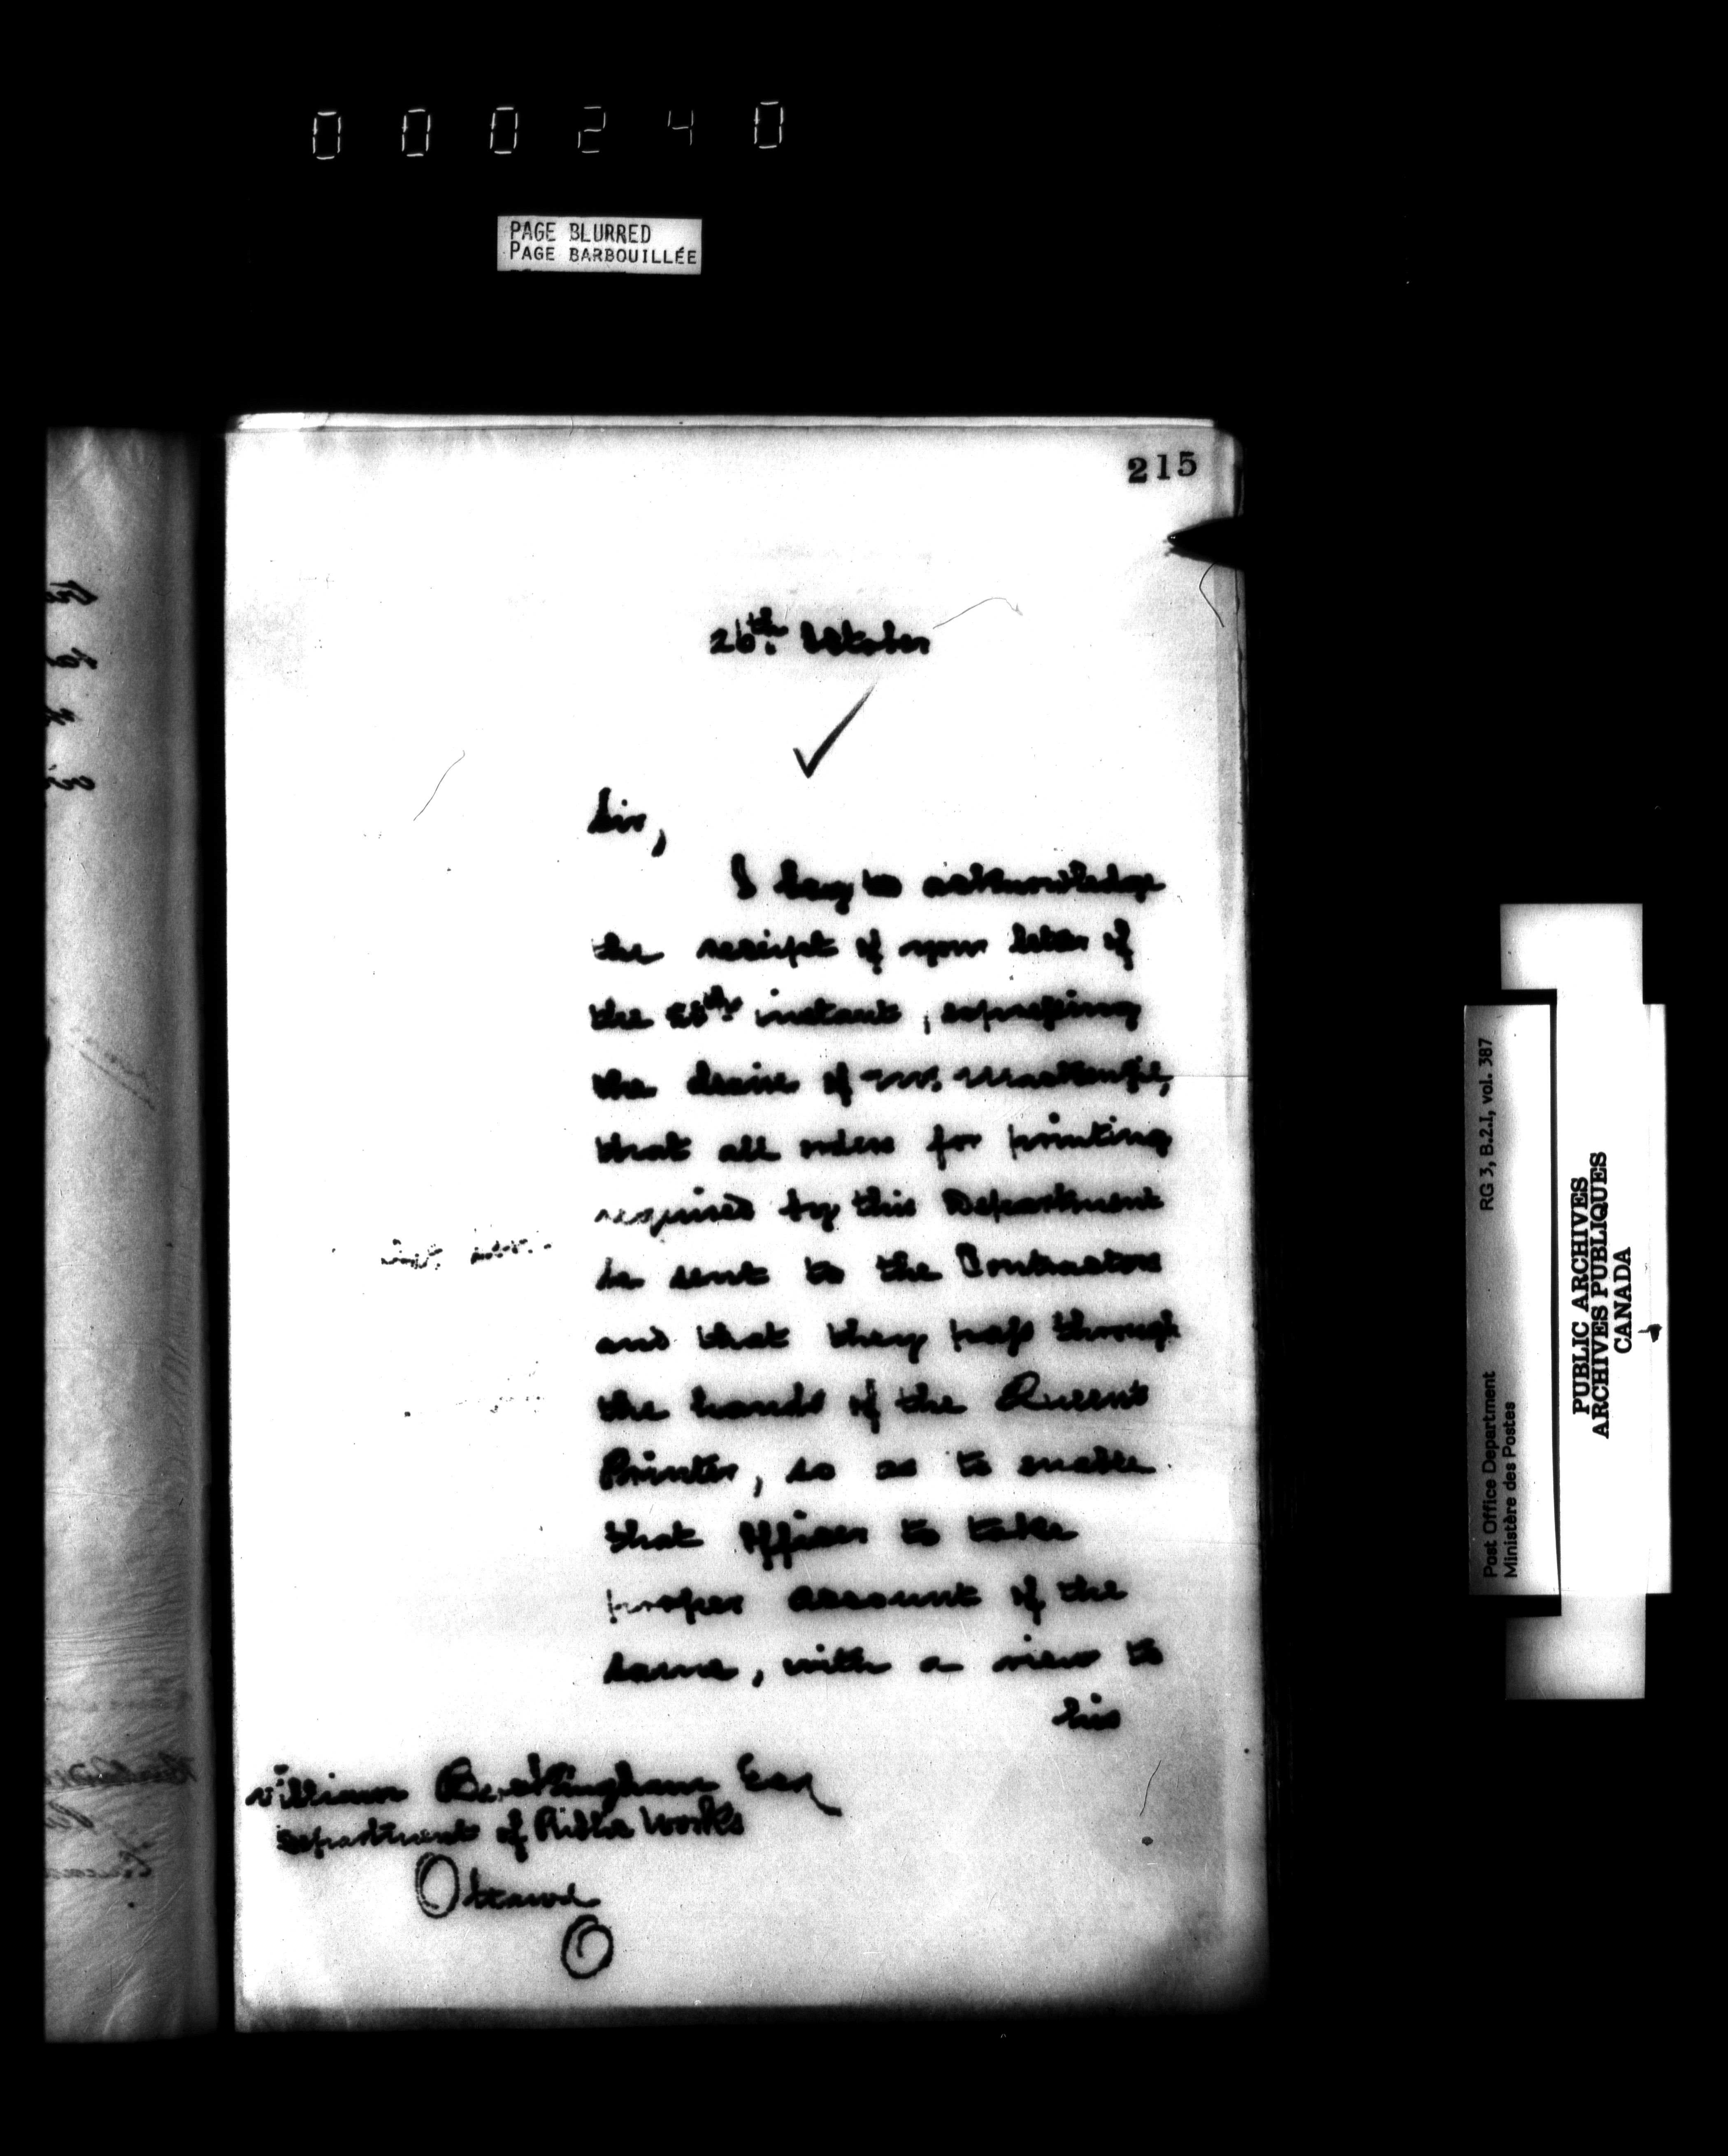 000240
PAGE BLURRED
PAGE BARBOUILLÉE
215
26th. October
Sir,
I beg to acknowledge
the receipt of your letter of
the instant, expressing
the desire of Mr. Mackenzie,
that all orders for printing
required by this Department
be sent to the Contractors
and that they pass through
the hands of the Queen's
Printer, so as to enable
that Officer to take
proper account of the
same, with a view to
his
William Buckingham Esq
Department of Public Works
Ottawa
Post Office Department RG 3, B.2.I, vol. 387
Ministère des Postes
PUBLIC ARCHIVES
ARCHIVES PUBLIQUES
CANADA